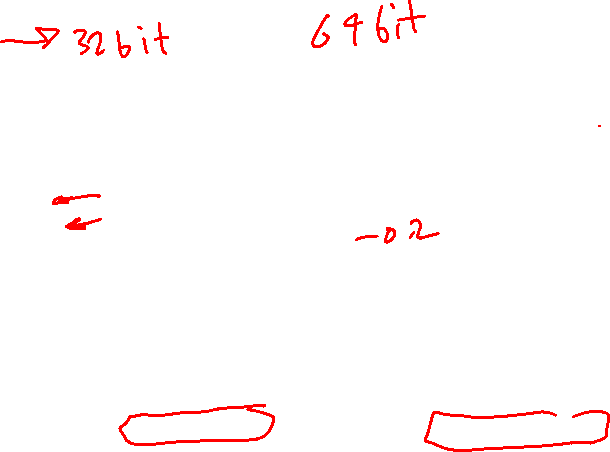 32bit 64bit
-02